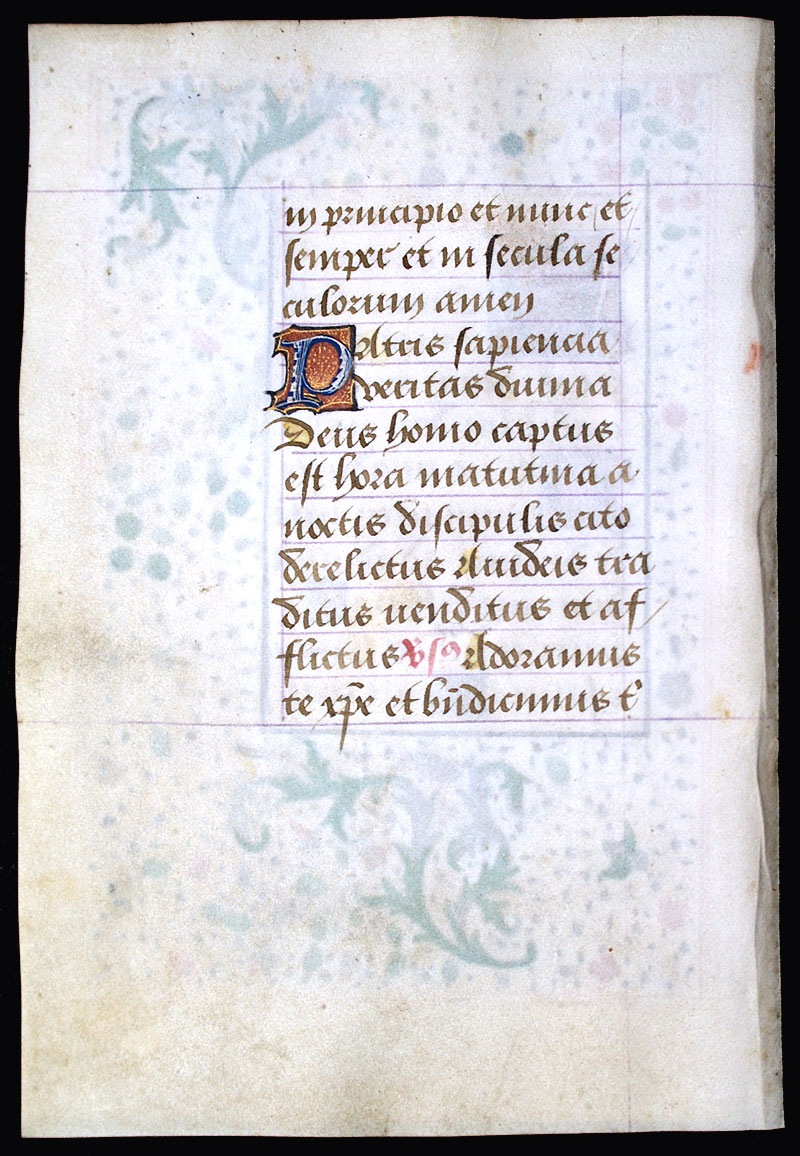 in principio et nunc et
semper et in secula se
culorum amen
Patris sapiencia
veritas divina
Deus homo captus
est hora matutina a
noctis discipulis cito
derelictus A iudeis tra
ditus venditus et af
flictus Vs9 Adoramus
te xp̄e et bn̄dicimus t'